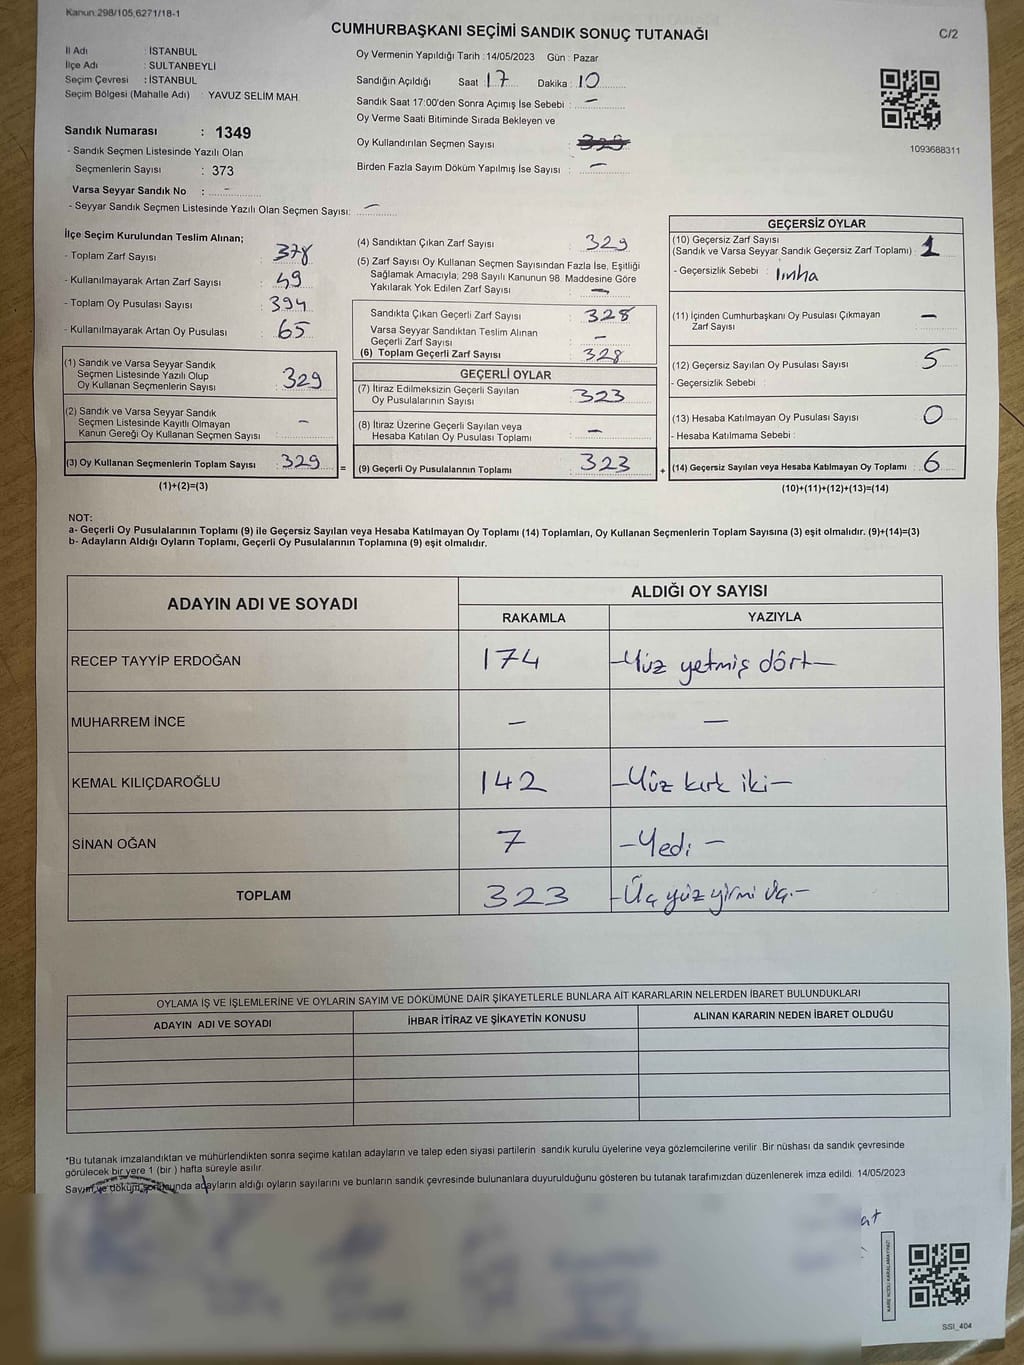 Kanun:298/105,6271/18-1
CUMHURBAŞKANI SEÇİMİ SANDIK SONUÇ TUTANAĞI
C/2
İl Adı : İSTANBUL
İlçe Adı : SULTANBEYLİ
Seçim Çevresi : İSTANBUL
Seçim Bölgesi (Mahalle Adı) : YAVUZ SELİM MAH.
Sandık Numarası : 1349
- Sandık Seçmen Listesinde Yazılı Olan
Seçmenlerin Sayısı : 373
Varsa Seyyar Sandık No : -
- Seyyar Sandık Seçmen Listesinde Yazılı Olan Seçmen Sayısı: -
Oy Vermenin Yapıldığı Tarih : 14/05/2023 Gün : Pazar
Sandığın Açıldığı Saat : 17 Dakika : 10
Sandık Saat 17:00'den Sonra Açımış İse Sebebi : -
Oy Verme Saati Bitiminde Sırada Bekleyen ve
Oy Kullandırılan Seçmen Sayısı :
Birden Fazla Sayım Döküm Yapılmış İse Sayısı : -
1093688311
İlçe Seçim Kurulundan Teslim Alınan;
- Toplam Zarf Sayısı : 378
- Kullanılmayarak Artan Zarf Sayısı : 49
- Toplam Oy Pusulası Sayısı : 394
- Kullanılmayarak Artan Oy Pusulası : 65
(1) Sandık ve Varsa Seyyar Sandık
Seçmen Listesinde Yazılı Olup
Oy Kullanan Seçmenlerin Sayısı : 329
(2) Sandık ve Varsa Seyyar Sandık
Seçmen Listesinde Kayıtlı Olmayan
Kanun Gereği Oy Kullanan Seçmen Sayısı : -
(3) Oy Kullanan Seçmenlerin Toplam Sayısı : 329
(1)+(2)=(3)
=
(4) Sandıktan Çıkan Zarf Sayısı : 329
(5) Zarf Sayısı Oy Kullanan Seçmen Sayısından Fazla İse, Eşitliği
Sağlamak Amacıyla; 298 Sayılı Kanunun 98. Maddesine Göre
Yakılarak Yok Edilen Zarf Sayısı : -
Sandıkta Çıkan Geçerli Zarf Sayısı : 328
Varsa Seyyar Sandıktan Teslim Alınan
Geçerli Zarf Sayısı : -
(6) Toplam Geçerli Zarf Sayısı : 328
GEÇERLİ OYLAR
(7) İtiraz Edilmeksizin Geçerli Sayılan
Oy Pusulalarının Sayısı : 323
(8) İtiraz Üzerine Geçerli Sayılan veya
Hesaba Katılan Oy Pusulası Toplamı : -
(9) Geçerli Oy Pusulalarının Toplamı : 323
+
GEÇERSİZ OYLAR
(10) Geçersiz Zarf Sayısı
(Sandık ve Varsa Seyyar Sandık Geçersiz Zarf Toplamı) : 1
- Geçersizlik Sebebi : İmha
(11) İçinden Cumhurbaşkanı Oy Pusulası Çıkmayan
Zarf Sayısı : -
(12) Geçersiz Sayılan Oy Pusulası Sayısı : 5
- Geçersizlik Sebebi :
(13) Hesaba Katılmayan Oy Pusulası Sayısı : 0
- Hesaba Katılmama Sebebi :
(14) Geçersiz Sayılan veya Hesaba Katılmayan Oy Toplamı : 6
(10)+(11)+(12)+(13)=(14)
NOT:
a- Geçerli Oy Pusulalarının Toplamı (9) ile Geçersiz Sayılan veya Hesaba Katılmayan Oy Toplamı (14) Toplamları, Oy Kullanan Seçmenlerin Toplam Sayısına (3) eşit olmalıdır. (9)+(14)=(3)
b- Adayların Aldığı Oyların Toplamı, Geçerli Oy Pusulalarının Toplamına (9) eşit olmalıdır.
ADAYIN ADI VE SOYADI
ALDIĞI OY SAYISI
RAKAMLA YAZIYLA
RECEP TAYYİP ERDOĞAN 174 -Yüz yetmiş dört-
MUHARREM İNCE - -
KEMAL KILIÇDAROĞLU 142 -Yüz kırk iki-
SİNAN OĞAN 7 -Yedi-
TOPLAM 323 -Üç yüz yirmi üç.-
OYLAMA İŞ VE İŞLEMLERİNE VE OYLARIN SAYIM VE DÖKÜMÜNE DAİR ŞİKAYETLERLE BUNLARA AİT KARARLARIN NELERDEN İBARET BULUNDUKLARI
ADAYIN ADI VE SOYADI İHBAR İTİRAZ VE ŞİKAYETİN KONUSU ALINAN KARARIN NEDEN İBARET OLDUĞU
*Bu tutanak imzalandıktan ve mühürlendikten sonra seçime katılan adayların ve talep eden siyasi partilerin sandık kurulu üyelerine veya gözlemcilerine verilir. Bir nüshası da sandık çevresinde
görülecek bir yere 1 (bir ) hafta süreyle asılır.
Sayım ve döküm sonucunda adayların aldığı oyların sayılarını ve bunların sandık çevresinde bulunanlara duyurulduğunu gösteren bu tutanak tarafımızdan düzenlenerek imza edildi. 14/05/2023
KARE KODU KARALAMAYINIZ!
SSI_404